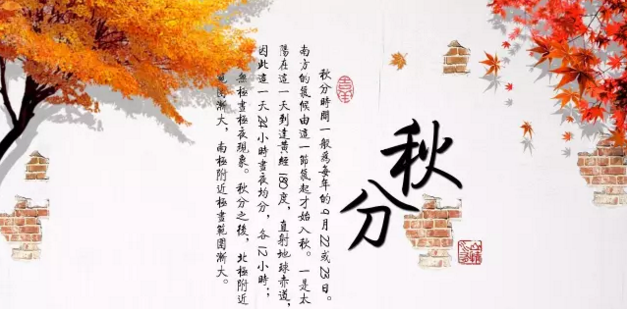 秋分
秋分時間一般為每年的9月22或23日。
南方的氣候由這一節氣起才始入秋。一是太
陽在這一天到達黃經180度，直射地球赤道，
因此這一天24小時晝夜均分，各12小時；
無極晝極夜現象。秋分之後，北極附近
範圍漸大，南極附近極晝範圍漸大。